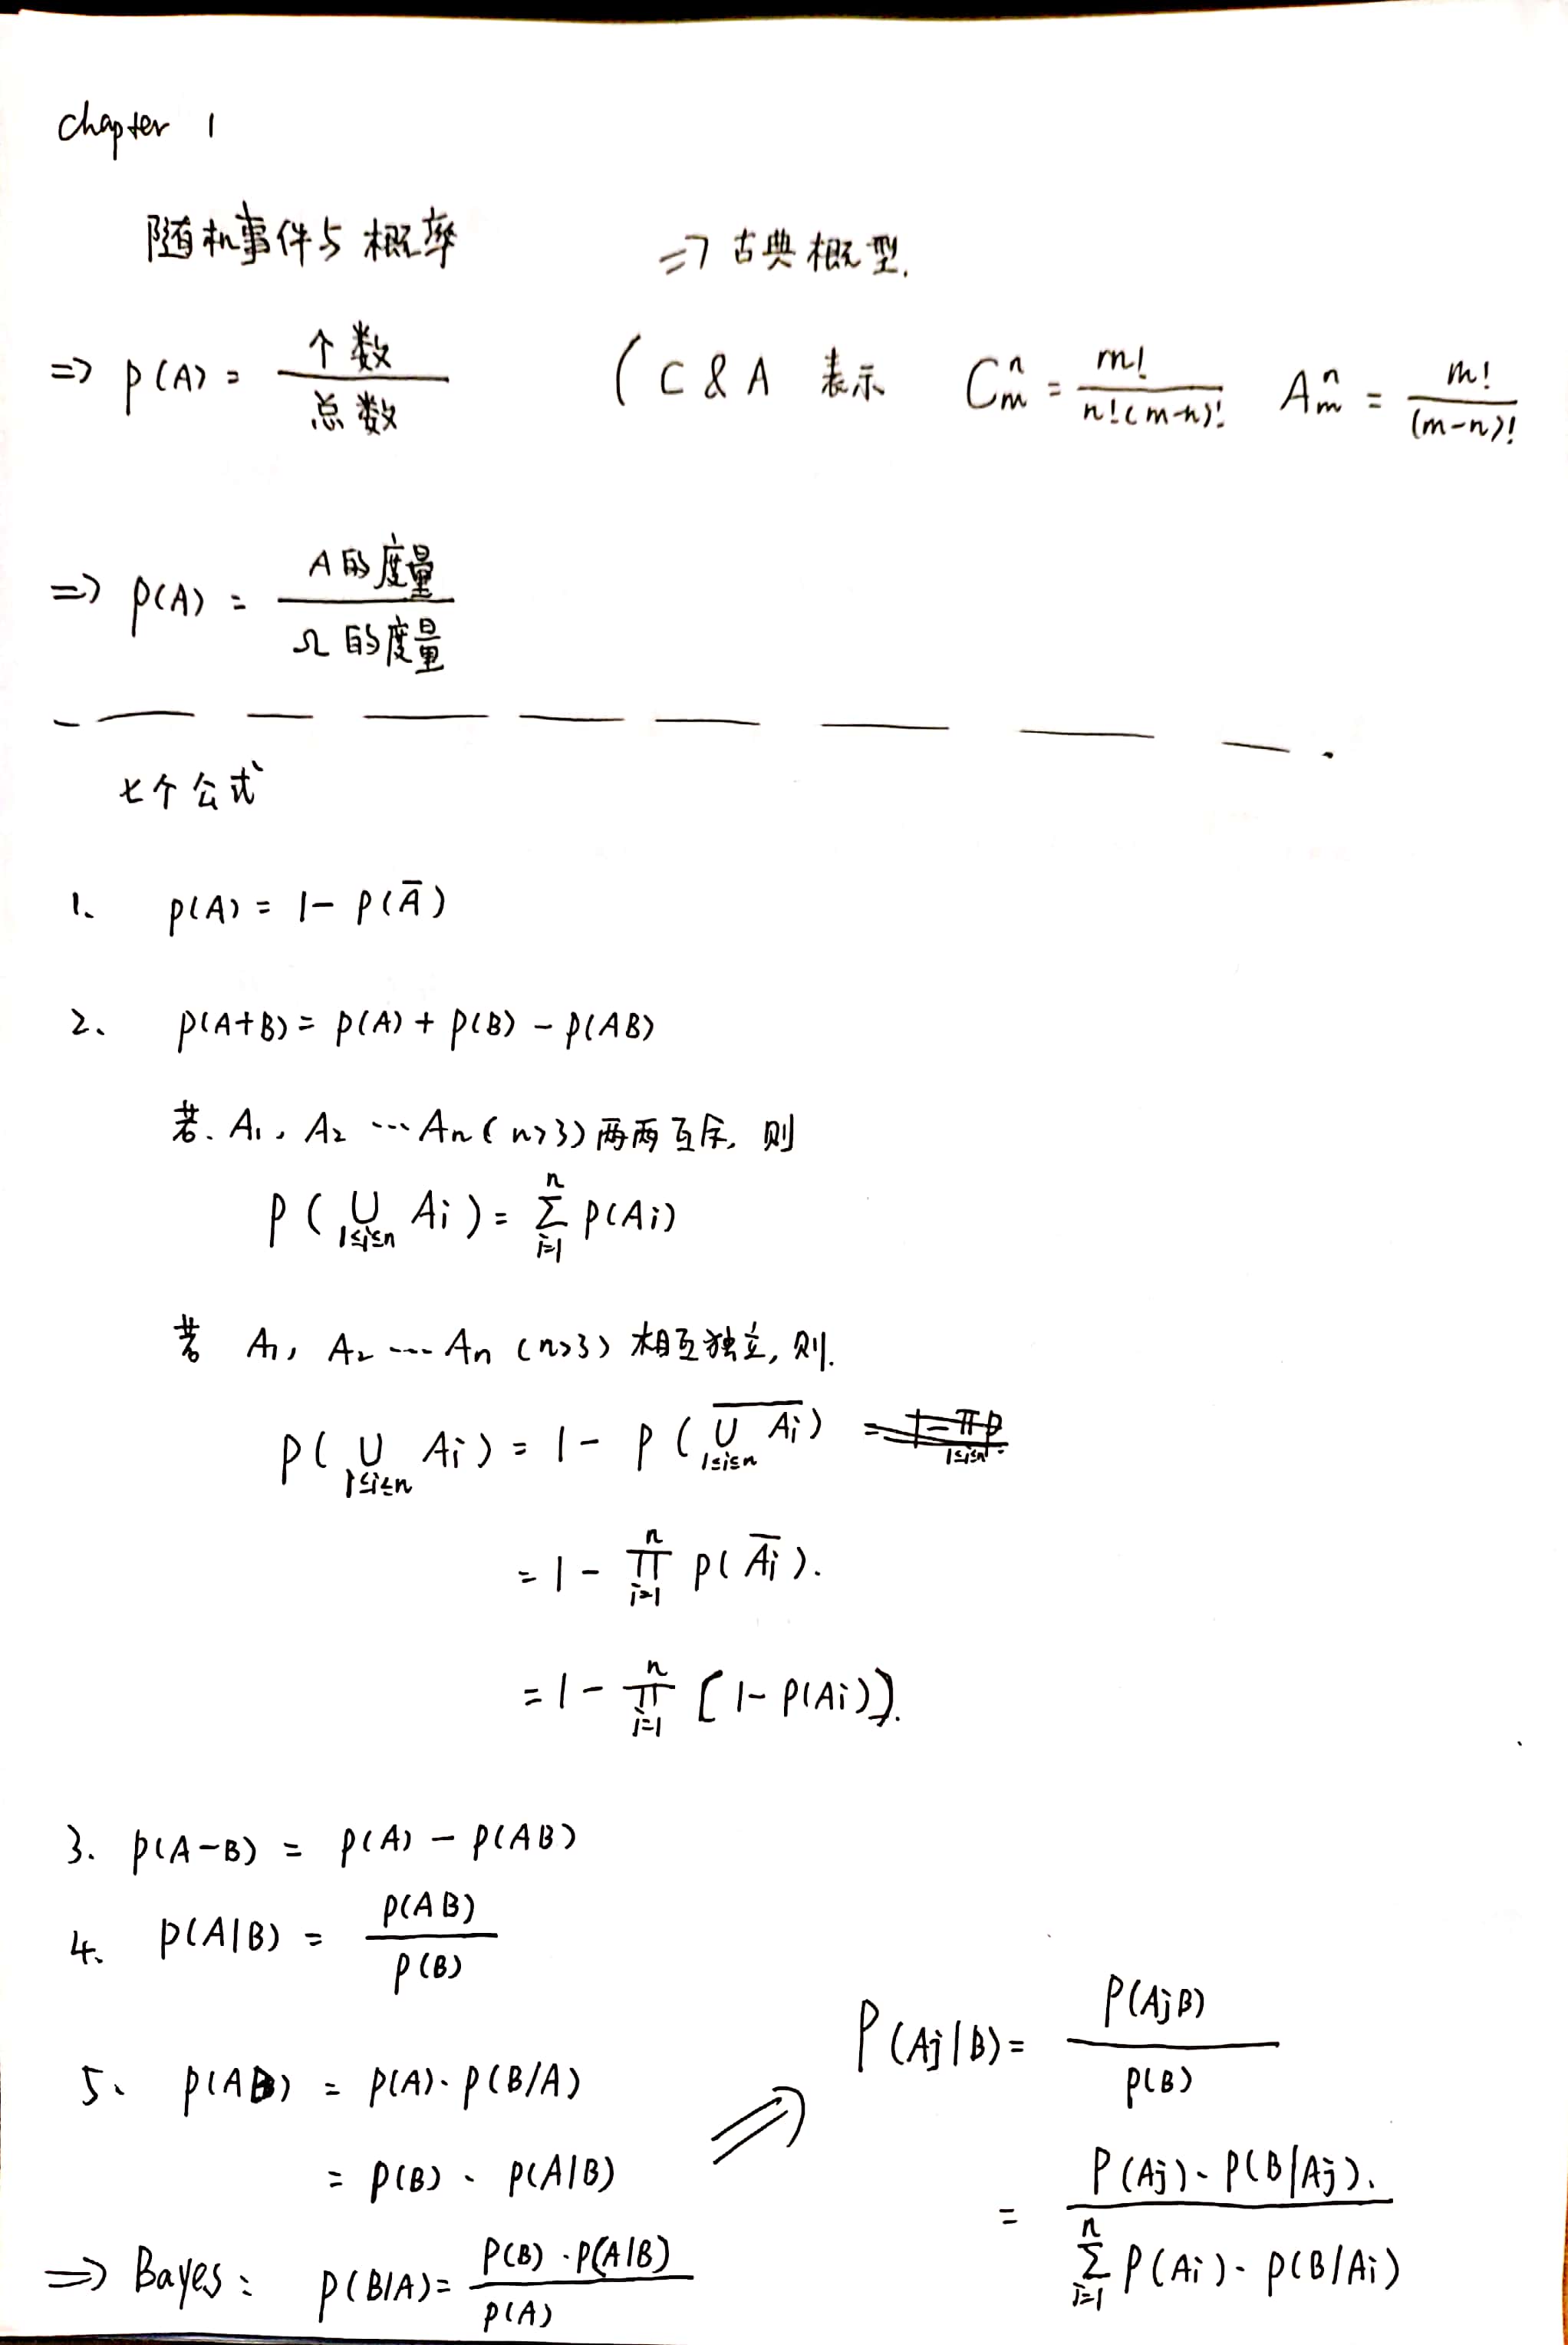 chapter 1
随机事件与概率 => 古典概型.
=> p(A) = 个数/总数 ( C & A 表示 C_m^n = m!/(n!(m-n)!) A_m^n = m!/(m-n)!
=> p(A) = A的度量/Ω的度量
七个公式
1、 p(A) = 1 - p(A̅)
2、 p(A+B) = p(A) + p(B) - p(AB)
若. A₁, A₂ ⋯ Aₙ (n>3) 两两互斥, 则
P(⋃_{1≤i≤n} Ai) = ∑_{i=1}^{n} P(Ai)
若 A₁, A₂ ⋯ Aₙ (n>3) 相互独立, 则.
P(⋃_{1≤i≤n} Ai) = 1 - P(\overline{⋃_{1≤i≤n} Ai})
= 1 - ∏_{i=1}^{n} P(\overline{Ai}).
= 1 - ∏_{i=1}^{n} [1 - P(Ai)].
3. p(A-B) = p(A) - p(AB)
4、 p(A|B) = p(AB)/p(B)
5、 p(AB) = p(A)·p(B/A)
= p(B)·p(A|B)
=> Bayes: p(B|A) = P(B)·P(A|B)/p(A)
=> P(Aj|B) = P(AjB)/P(B)
= P(Aj)·P(B|Aj)./∑_{i=1}^{n} P(Ai)·P(B/Ai)